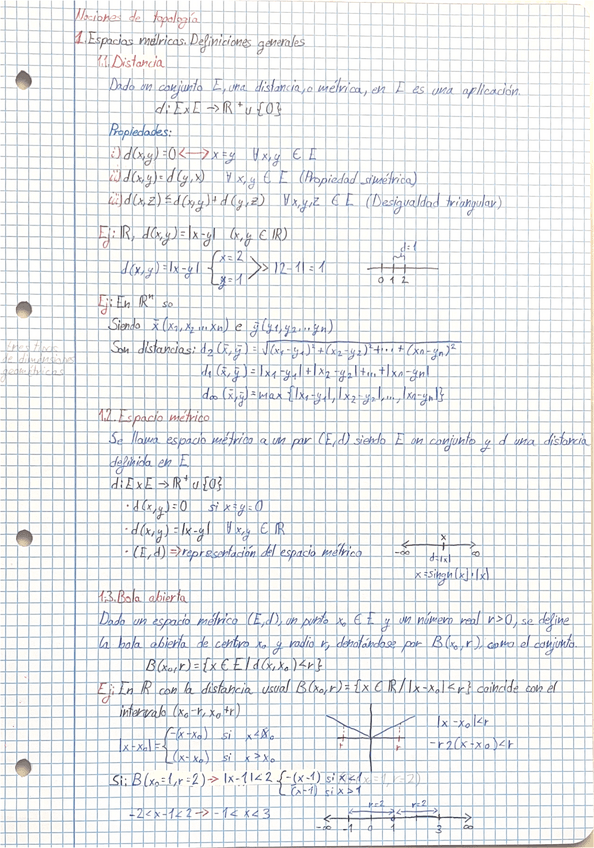 Nociones de topología
1. Espacios métricos. Definiciones generales
1.1. Distancia
Dado un conjunto E, una distancia, o métrica, en E es una aplicación.
d: E x E → ℝ⁺ ∪ {0}
Propiedades:
i) d(x,y) = 0 <—> x = y ∀ x,y ∈ E
ii) d(x,y) = d(y,x) ∀ x,y ∈ E (Propiedad simétrica)
iii) d(x,z) ≤ d(x,y) + d(y,z) ∀ x,y,z ∈ E (Desigualdad triangular)
Ej: ℝ, d(x,y) = |x-y| (x,y ∈ ℝ)
d(x,y) = |x-y| { x=2 y=1 >> |2-1| = 1
d=1
0 1 2
Ej: En ℝⁿ so
Siendo x̄(x₁,x₂...xn) e ȳ(y₁,y₂...yn)
Son distancias: d₂(x̄,ȳ) = √(x₁-y₁)²+(x₂-y₂)²+...+(xn-yn)²
d₁(x̄,ȳ) = |x₁-y₁|+|x₂-y₂|+...+|xn-yn|
d∞(x̄,ȳ) = max{|x₁-y₁|,|x₂-y₂|,...,|xn-yn|}
de dimensiones
geométricas
1.2. Espacio métrico
Se llama espacio métrico a un par (E,d) siendo E un conjunto y d una distancia
definida en E
d: E x E → ℝ⁺ ∪ {0}
· d(x,y) = 0 si x=y=0
· d(x,y) = |x-y| ∀ x,y ∈ ℝ
· (E,d) ⇒ representación del espacio métrico
x
-∞ ∞
d=|x|
x = singn[x]·|x|
1.3. Bola abierta
Dado un espacio métrico (E,d), un punto x₀ ∈ E y un número real r>0, se define
la bola abierta de centro x₀ y radio r, denotándose por B(x₀,r), como el conjunto.
B(x₀,r) = {x ∈ E / d(x,x₀) < r}
Ej: En ℝ con la distancia usual B(x₀,r) = {x ∈ ℝ / |x-x₀| < r} coincide con el
intervalo (x₀-r, x₀+r)
|x-x₀| = { -(x-x₀) si x < x₀
(x-x₀) si x > x₀
r r
|x-x₀| < r
-r2(x-x₀) < r
Si: B(x₀=1, r=2) → |x-1| < 2 { -(x-1) si x < 1
(x-1) si x > 1
-2 < x-1 < 2 → -1 < x < 3
r=2 r=2
-∞ -1 0 1 3 ∞